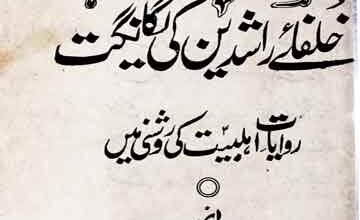 خلفائے راشدین کی یگانگت
روایات اہلبیتؑ کی روشنی میں
از